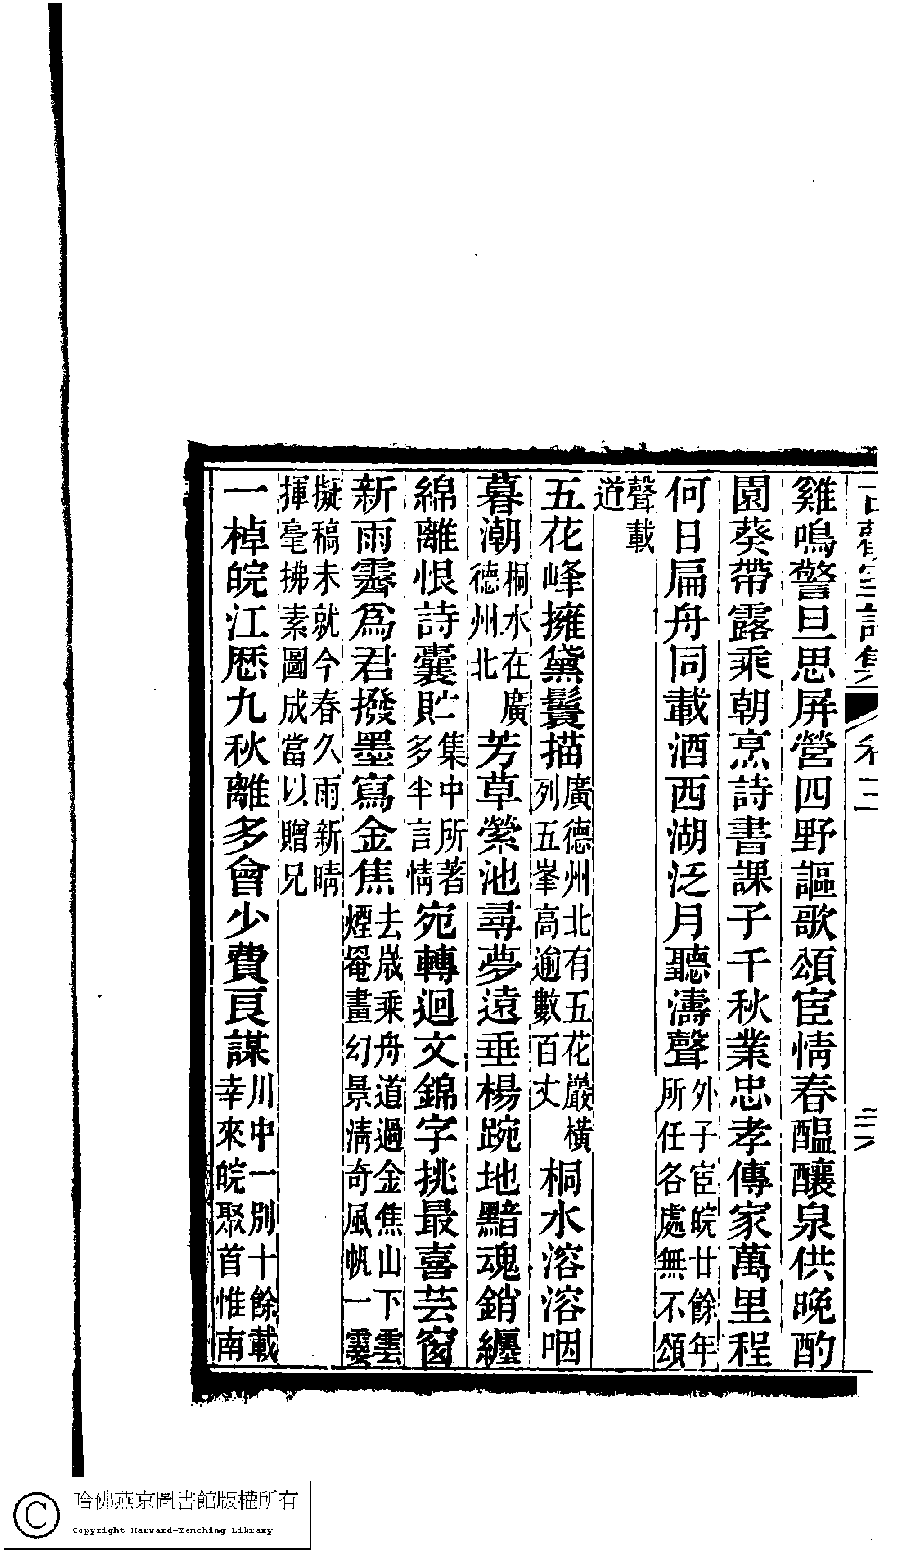 古歡室詩集 卷二
雞鳴警旦思屏營四野謳歌頌宦情春醖釀泉供晚酌
園葵帶露乘朝烹詩書課子千秋業忠孝傳家萬里程
何日扁舟同載酒西湖泛月聽濤聲外子宦皖廿餘年所任各處無不頌
聲載道
五花峰擁黛鬟描廣德州北有五花巖橫列五峯高逾數百丈桐水溶溶咽
暮潮桐水在廣德州北芳草縈池尋夢遠垂楊踠地黯魂銷纏
綿離恨詩囊貯集中所著多半言情宛轉迴文錦字挑最喜芸窗
新雨霽爲君撥墨寫金焦去歲乘舟道過金焦山下雲煙罨畫幻景淸奇風帆一霎
擬稿未就今春久雨新晴揮毫拂素圖成當以贈兄
一棹皖江歷九秋離多會少費良謀川中一別十餘載幸來皖聚首惟南
哈佛燕京圖書館版權所有
Copyright Harvard-Yenching Library